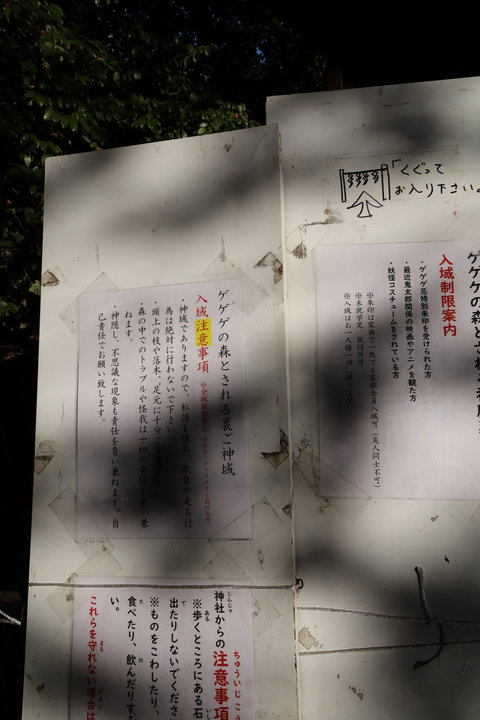 「くぐって
お入り下さい。
入域制限案内
・ゲゲゲ忌特別朱印を受けられた方
・最近鬼太郎関係の映画やアニメを観た方
・妖怪コスチュームをされている方
※朱印は家族で一枚でも家族全員入域可（友人同士不可）
※未就学児、親同伴可
※入域はお一人様一回
ゲゲゲの森とされる裏ご神域
入域注意事項
・神域でありますので、私語を慎み、飲食や走る行
為は絶対に行わないで下さい。
・頭上の枝や落木、足元に十分ご
ねます。
・森の中でのトラブルや怪我は一切の責任を負い兼
・神隠し、不思議な現象も責任を負い兼ねます。自
己責任でお願い致します。
神社からの注意事項
じんじゃ ちゅういじこう
※歩くところにある石
出たりしないでくださ
※ものをこわしたり、
食べたり、飲んだりする
い。
これらを守れない場合は